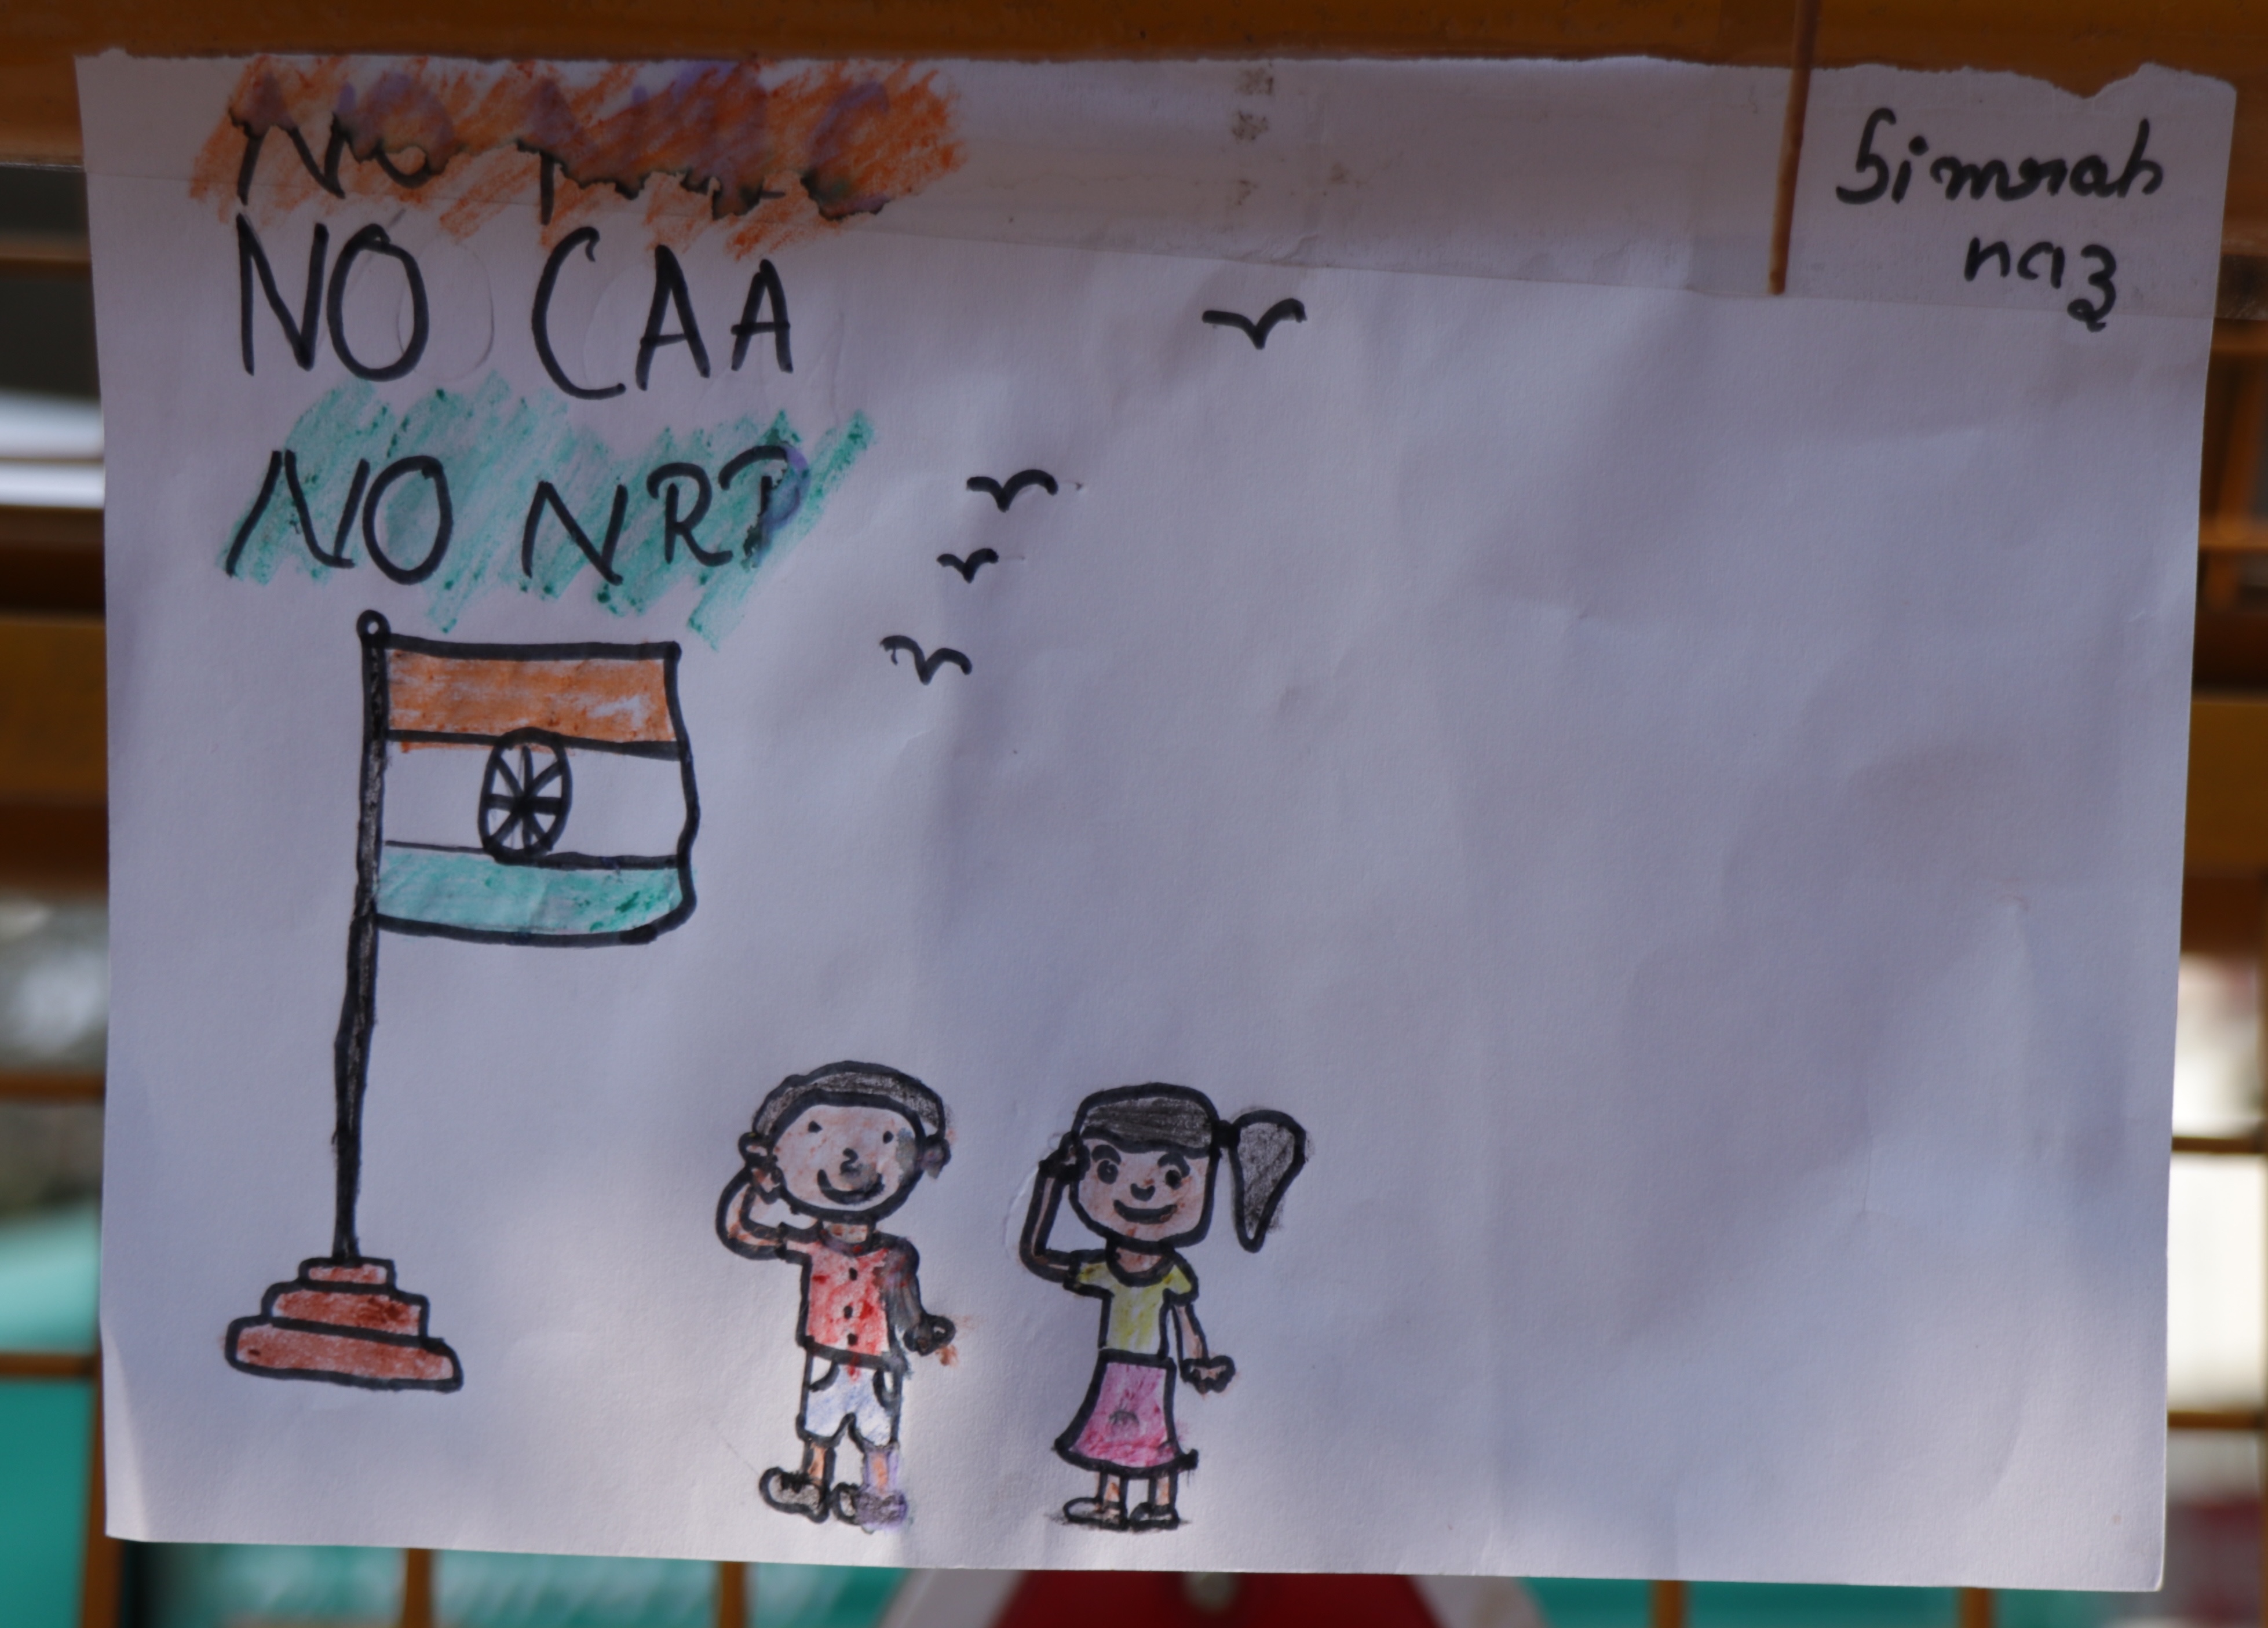 NO
NO CAA
NO NRP
Simrah
naz